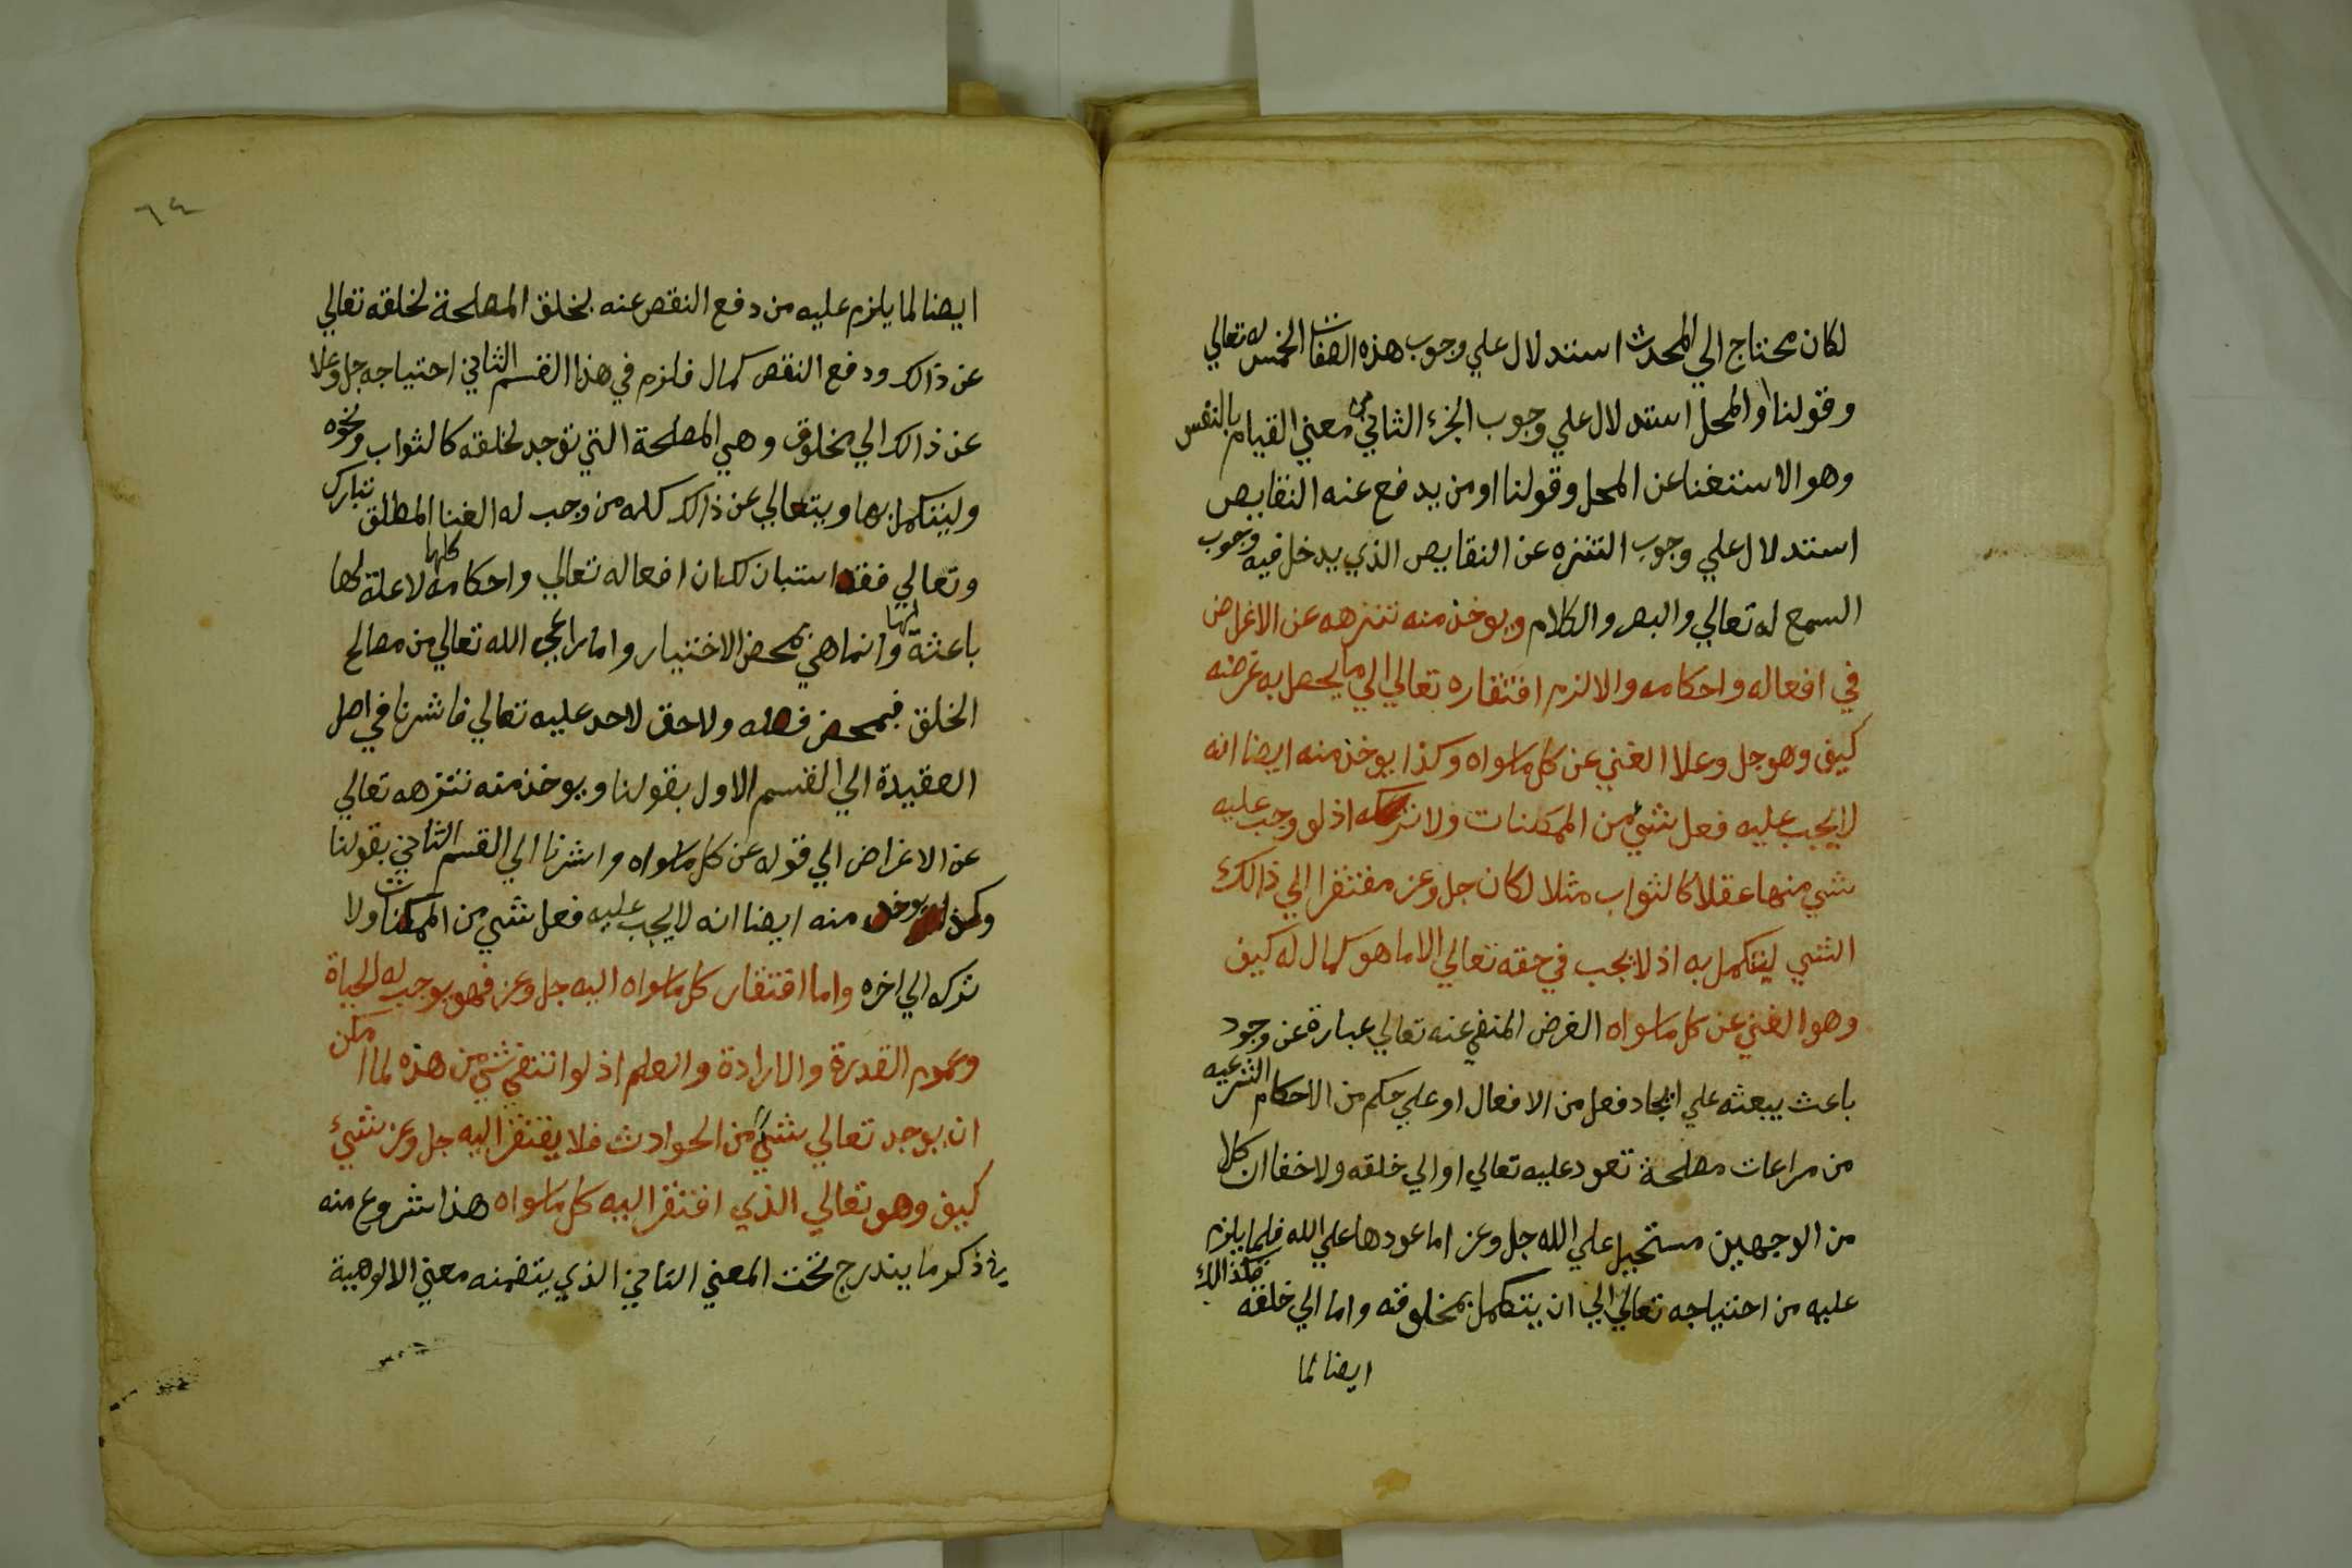 لكان محتاج الي المحدث استدلال علي وجوب هذه الصفات الخمس له تعالي
وقولنا او المحل استدلال علي وجوب الجزء الثاني من معني القيام بالنفس
وهو الاستغنا عن المحل وقولنا او من يدفع عنه النقايص
استدلال علي وجوب التنزه عن النقايص الذي يدخل فيه وجوب
السمع له تعالي والبصر والكلام ويوخذ منه تنزهه عن الاغراض
في افعاله واحكامه والا لزم افتقاره تعالي الي ما يحصل به غرضه
كيف وهو جل وعلا الغني عن كل ماسواه وكذا يوخذ منه ايضا انه
لا يجب عليه فعل شيء من الممكنات ولا تركه اذ لو وجب عليه
شي منها عقلا كالثواب مثلا لكان جل وعز مفتقرا الي ذالك
الشي ليتكمل به اذ لا يجب في حقه تعالي الا ما هو كمال له كيف
وهو الغني عن كل ماسواه الغرض المنفي عنه تعالي عبارة عن وجود
باعث يبعثه علي ايجاد فعل من الافعال او علي حكم من الاحكام الشرعيه
من مراعات مصلحة تعود عليه تعالي او الي خلقه ولا خفا ان كلا
من الوجهين مستحيل علي الله جل وعز اما عودها علي الله فلما يلزم
عليه من احتياجه تعالي الي ان يتكمل بمخلوقه واما الي خلقه فكذالك
ايضا لما
٦٤
ايضا لما يلزم عليه من دفع النقص عنه بخلق المصلحة لخلقه تعالي
عن ذالك ودفع النقص كمال فلزم في هذا القسم الثاني احتياجه جل وعلا
عن ذالك الي مخلوق وهي المصلحة التي توجد لخلقه كالثواب ونحوه
وليتكمل بها ويتعالي عن ذالك كله من وجب له الغنا المطلق تبارك
وتعالي فقد استبان لك ان افعاله تعالي واحكامه كلها لا علة لها
باعثة لها وانما هي بمحض الاختيار واما راعي الله تعالي من مصالح
الخلق فبمحض فضله ولا حق لاحد عليه تعالي فاشرنا في اصل
العقيدة الي القسم الاول بقولنا ويوخذ منه تنزهه تعالي
عن الاغراض الي قوله عن كل ماسواه واشرنا الي القسم الثاني بقولنا
وكذا يوخذ منه ايضا انه لا يجب عليه فعل شي من الممكنات ولا
تركه الي اخره واما افتقار كل ماسواه اليه جل وعز فهو يوجب له الحياة
وعموم القدرة والارادة والعلم اذ لو انتفي شي من هذه لما امكن
ان يوجد تعالي شيء من الحوادث فلا يفتقر اليه جل وعز شيء
كيف وهو تعالي الذي افتقر اليه كل ماسواه هذا شروع منه
في ذكر ما يندرج تحت المعني الثاني الذي يتضمنه معني الالوهية